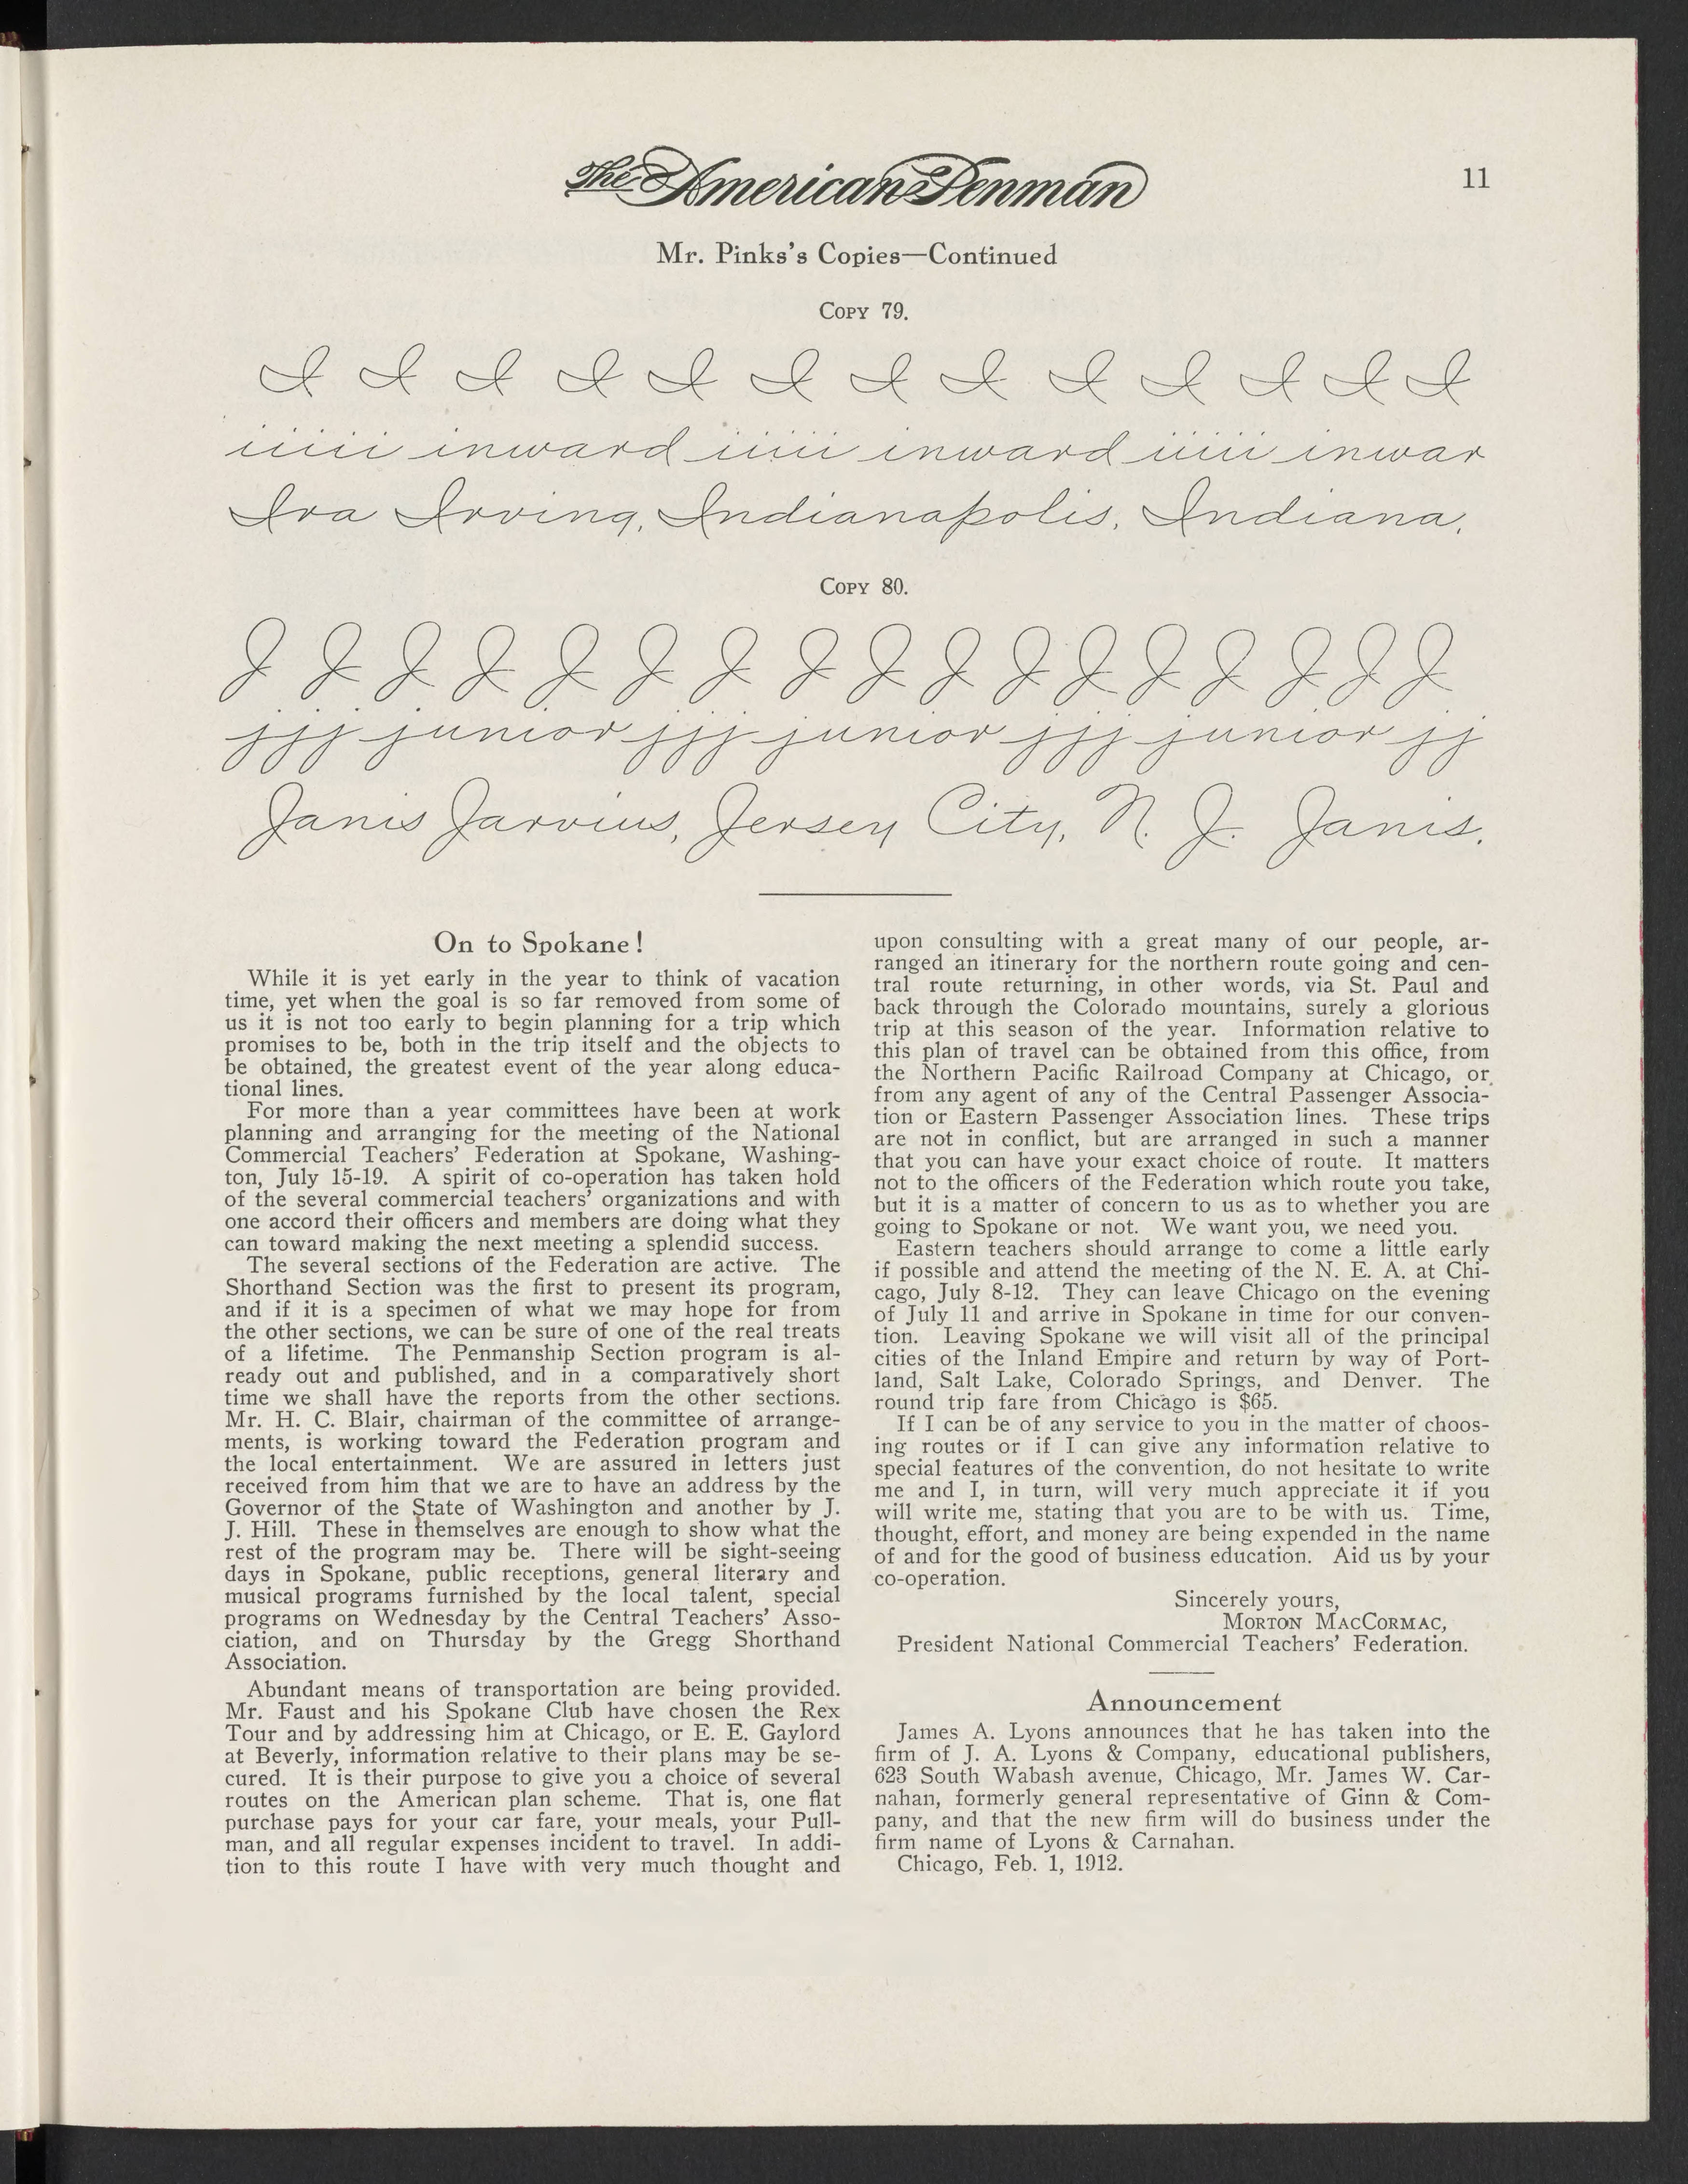 The American Penman
11
Mr. Pinks's Copies—Continued
COPY 79.
I I I I I I I I I I I I I
iiiii inward iiiii inward iiiii inwar
Ira Irving, Indianapolis, Indiana,
COPY 80.
J J J J J J J J J J J J J J J J J
jjj junior jjj junior jjj junior jj
Janis Jarvius, Jersey City, N. J. Janis,
On to Spokane!
While it is yet early in the year to think of vacation
time, yet when the goal is so far removed from some of
us it is not too early to begin planning for a trip which
promises to be, both in the trip itself and the objects to
be obtained, the greatest event of the year along educa-
tional lines.
For more than a year committees have been at work
planning and arranging for the meeting of the National
Commercial Teachers' Federation at Spokane, Washing-
ton, July 15-19. A spirit of co-operation has taken hold
of the several commercial teachers' organizations and with
one accord their officers and members are doing what they
can toward making the next meeting a splendid success.
The several sections of the Federation are active. The
Shorthand Section was the first to present its program,
and if it is a specimen of what we may hope for from
the other sections, we can be sure of one of the real treats
of a lifetime. The Penmanship Section program is al-
ready out and published, and in a comparatively short
time we shall have the reports from the other sections.
Mr. H. C. Blair, chairman of the committee of arrange-
ments, is working toward the Federation program and
the local entertainment. We are assured in letters just
received from him that we are to have an address by the
Governor of the State of Washington and another by J.
J. Hill. These in themselves are enough to show what the
rest of the program may be. There will be sight-seeing
days in Spokane, public receptions, general literary and
musical programs furnished by the local talent, special
programs on Wednesday by the Central Teachers' Asso-
ciation, and on Thursday by the Gregg Shorthand
Association.
Abundant means of transportation are being provided.
Mr. Faust and his Spokane Club have chosen the Rex
Tour and by addressing him at Chicago, or E. E. Gaylord
at Beverly, information relative to their plans may be se-
cured. It is their purpose to give you a choice of several
routes on the American plan scheme. That is, one flat
purchase pays for your car fare, your meals, your Pull-
man, and all regular expenses incident to travel. In addi-
tion to this route I have with very much thought and
upon consulting with a great many of our people, ar-
ranged an itinerary for the northern route going and cen-
tral route returning, in other words, via St. Paul and
back through the Colorado mountains, surely a glorious
trip at this season of the year. Information relative to
this plan of travel can be obtained from this office, from
the Northern Pacific Railroad Company at Chicago, or
from any agent of any of the Central Passenger Associa-
tion or Eastern Passenger Association lines. These trips
are not in conflict, but are arranged in such a manner
that you can have your exact choice of route. It matters
not to the officers of the Federation which route you take,
but it is a matter of concern to us as to whether you are
going to Spokane or not. We want you, we need you.
Eastern teachers should arrange to come a little early
if possible and attend the meeting of the N. E. A. at Chi-
cago, July 8-12. They can leave Chicago on the evening
of July 11 and arrive in Spokane in time for our conven-
tion. Leaving Spokane we will visit all of the principal
cities of the Inland Empire and return by way of Port-
land, Salt Lake, Colorado Springs, and Denver. The
round trip fare from Chicago is $65.
If I can be of any service to you in the matter of choos-
ing routes or if I can give any information relative to
special features of the convention, do not hesitate to write
me and I, in turn, will very much appreciate it if you
will write me, stating that you are to be with us. Time,
thought, effort, and money are being expended in the name
of and for the good of business education. Aid us by your
co-operation.
Sincerely yours,
MORTON MACCORMAC,
President National Commercial Teachers' Federation.
Announcement
James A. Lyons announces that he has taken into the
firm of J. A. Lyons & Company, educational publishers,
623 South Wabash avenue, Chicago, Mr. James W. Car-
nahan, formerly general representative of Ginn & Com-
pany, and that the new firm will do business under the
firm name of Lyons & Carnahan.
Chicago, Feb. 1, 1912.